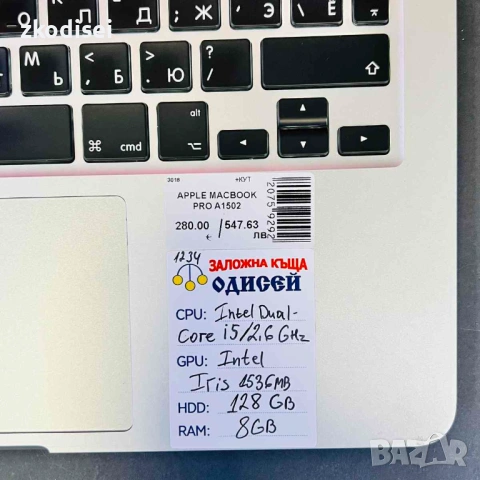 zkodisei
О Л Д Ж Э Ё
М Ь Б Ю /
, . ?
alt
⌘ cmd ⌥
◄ ▲ ▼ ►
+КУТ
APPLE MACBOOK
PRO A1502
280.00 / 547.63
€ ЛВ
2075929
1234
ЗАЛОЖНА КЪЩА
ОДИСЕЙ
CPU: Intel Dual-
Core i5/2,6 GHz
GPU: Intel
Iris 1536MB
HDD: 128 GB
RAM: 8GB
BAZAR